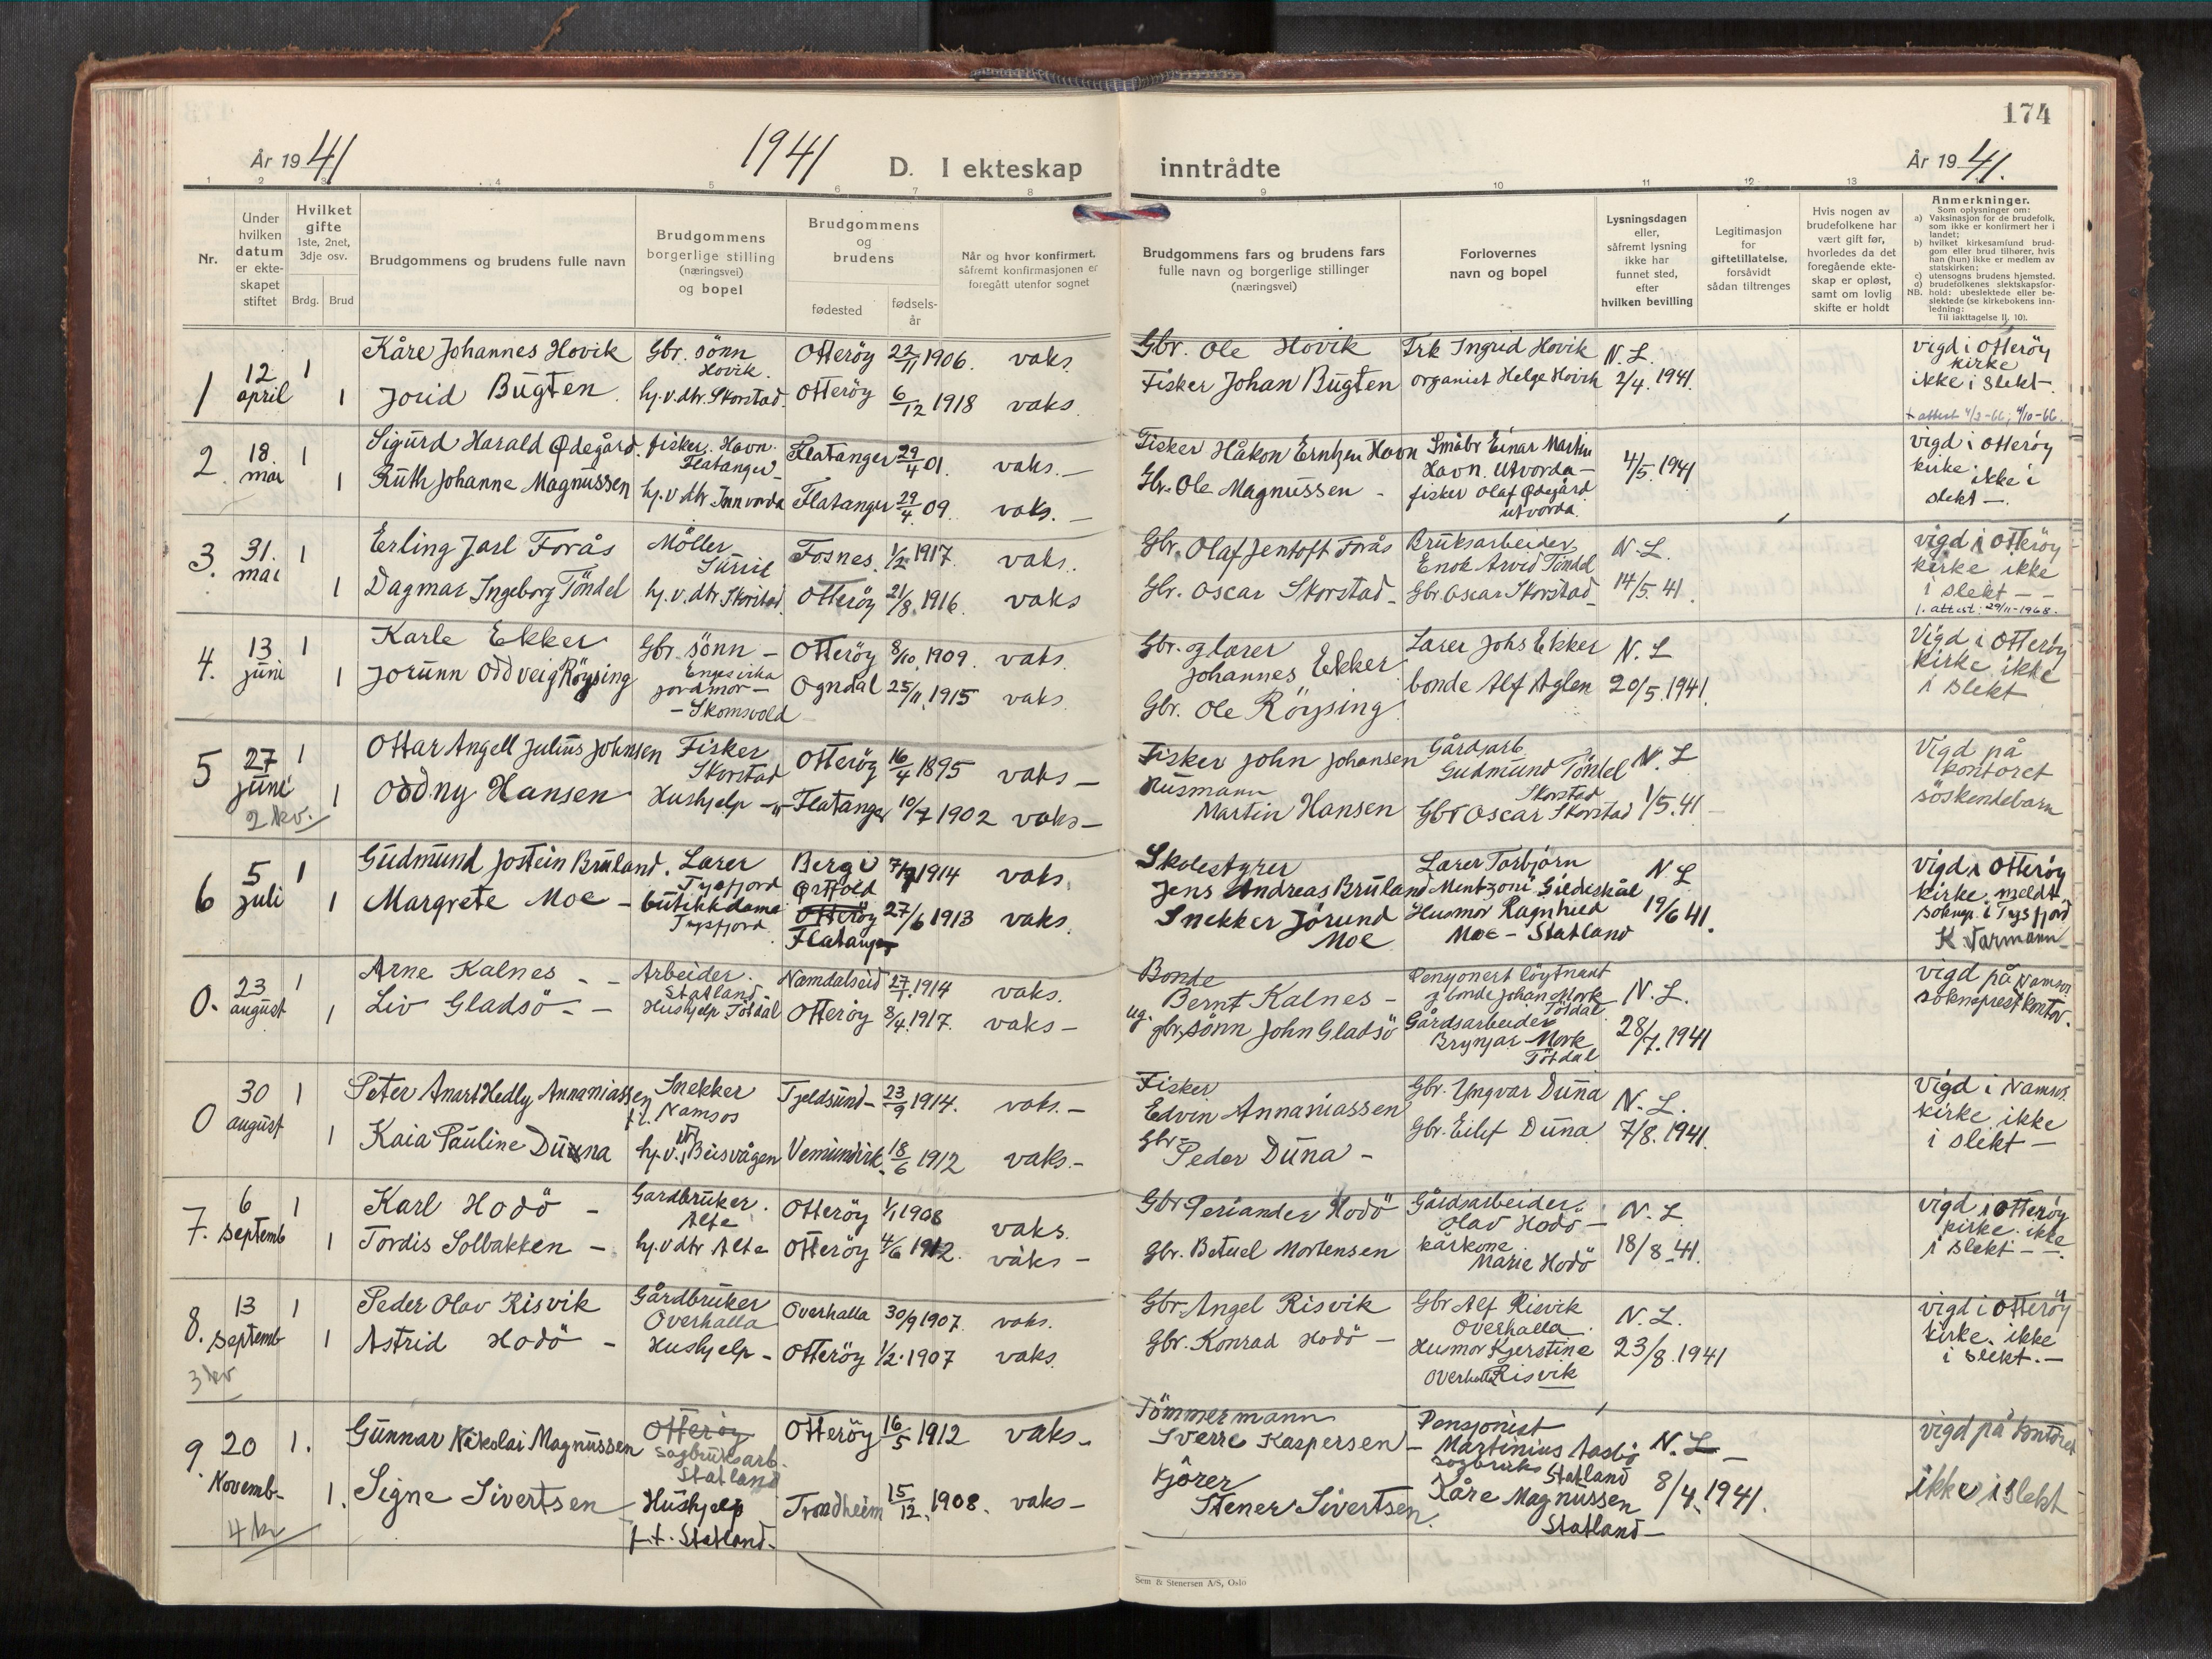 174
År 1941
1941
D. I ekteskap inntrådte
År 1941.
1 2 3 4 5 6 7 8 9 10 11 12 13
Nr.
Under hvilken datum er ekteskapet stiftet
Hvilket gifte 1ste, 2net, 3dje osv.
Brdg. Brud
Brudgommens og brudens fulle navn
Brudgommens borgerlige stilling (næringsvei) og bopel
Brudgommens og brudens
fødested
fødselsår
Når og hvor konfirmert, såfremt konfirmasjonen er foregått utenfor sognet
Brudgommens fars og brudens fars fulle navn og borgerlige stillinger (næringsvei)
Forlovernes navn og bopel
Lysningsdagen eller, såfremt lysning ikke har funnet sted, efter hvilken bevilling
Legitimasjon for giftetillatelse, forsåvidt sådan tiltrenges
Hvis nogen av brudefolkene har vært gift før, hvorledes da det foregående ekteskap er opløst, samt om lovlig skifte er holdt
Anmerkninger.
Som oplysninger om:
a) Vaksinasjon for de brudefolk, som ikke er konfirmert her i landet;
b) hvilket kirkesamfund brudgom eller brud tilhører, hvis han (hun) ikke er medlem av statskirken;
c) utensogns brudens hjemsted.
d) brudefolkenes slektskapsforhold: ubeslektede eller beslektede (se kirkebokens innledning:
NB.
Til iakttagelse II, 10).
1 12 april 1 Kåre Johannes Hovik Gbr. sønn Hovik. Otterøy 22/11 1906. vaks.
1 Jorid Bugten. hj.v.dtr. Skorstad. Otterøy 6/12 1918 vaks.
Gbr. Ole Hovik Frk Ingrid Hovik N.L.
Fisker Johan Bugten organist Helge Hovik 2/4. 1941.
vigd i Otterøy kirke ikke i slekt-
+ attest 4/3-66; 4/10-66.
2 18 mai 1 Sigurd Harald Ødegård. fisker. Havn. Flatanger Flatanger 29/4 01. vaks.-
1 Ruth Johanne Magnussen hj.v dtr Innvorda Flatanger 29/4. 09. vaks.-
Fisker Håkon Erntzen Havn Småbr Einar Martin Havn. Utvorda- 4/5. 1941
Gbr. Ole Magnussen - fisker Olaf Ødegård utvorda.
vigd i Otterøy kirke. ikke i slekt-.
3. 31. mai 1 Erling Jarl Forås Möller Fosnes. 1/2. 1917. vaks.
1 Dagmar Ingeborg Töndel hj.v.dtr Skorstad Otterøy 21/8. 1916. vaks
Gbr. Olaf Jentoft Forås Bruksarbeider Enok Arvid Töndel N.L.
Gbr. Oscar Skorstad- Gbr. Oscar Skorstad- 14/5. 41.
vigd i Otterøy kirke ikke i slekt--
1. attest: 29/11-1968.
4. 13 juni 1 Karle Ekker Gbr. sönn - Otterøy 8/10. 1909. vaks.
1 Jorunn Oddveig Röysing jordmor- -Skomsvold Ogndal 25/11. 1915 vaks.
Gbr. og lærer Johannes Ekker Lærer Johs Ekker N.L
Gbr. Ole Röysing bonde Alf Aglen 20/5. 1941.
Vigd i Otterøy kirke ikke i slekt
5 27 juni 1 Ottar Angell Julius Johnsen Fisker Skorstad Otterøy 16/4 1895 vaks-
2 kv. 1 Oddny Hansen Hushjelp -"- Flatanger 10/7 1902 vaks-
Fisker John Johansen Gårdjarb. Gudmund Töndel Skorstad N.L
Husmann Martin Hansen Gbr Oscar Skorstad 1/5. 41 -
Vigd på kontoret söskendebarn
6 5 juli 1 Gudmund Jostein Bruland. Lærer Tysfjord Berg i Østfold 7/7 1914 vaks.
1 Margrete Moe - butikkdama Tysfjord Otterøy Flatanger 27/6 1913 vaks.
Skolestyrer Jens Andreas Bruland Lærer Torbjørn Mentzoni Gildeskål N L
Snekker Jörund Moe Husmor Ragnhild Moe - Statland 19/6 41.
vigd i Otterøy kirke. meldt soknepr. i Tysfjord K. Varmann-
0. 23 august 1 Arne Kalnes - - Arbeider. Statland Namdalseid 27/7. 1914 vaks.
1 Liv Gladsö - - Hushjelp Tötdal Otterøy 8/4. 1917. vaks-
Bonde Bernt Kalnes - Pensjonert löytnant og bonde Johan Mork Tötdal N.L.
ug. gbr. sönn John Gladsö Gårdsarbeider Brynjar Mork Tötdal 28/7. 1941
vigd på Namsos sokneprestkontor.
0 30 august 1 Peter Anart Hedly Annaniassen Snekker f.t. Namsos Tjeldsund- 23/9 1914. vaks.-
1 Kaia Pauline Duna hj.v. dtr Beisvågen Vemundvik 18/6 1912 vaks.-
Fisker Edvin Annaniassen Gbr. Yngvar Duna N.L.
Gbr- Peder Duna - Gbr. Eilif Duna 7/8. 1941.
vigd i Namsos. kirke ikke i slekt-
7. 6 septemb 1 Karl Hodö - Gardbruker. Alte Otterøy 1/1 1908 vaks.
1 Tordis Solbakken - hj.v dtr Alte Otterøy 4/6 1912. vaks-
Gbr Periander Hodö Gårdsarbeider Olav Hodö- N.L
Gbr. Betuel Mortensen kårkone Marie Hodö 18/8 41.
vigd i Otterøy kirke. ikke i slekt--.
8. 13 septemb 1 Peder Olav Risvik Gårdbruker Overhalla Overhalla 30/9 1907. vaks.
3 kv 1 Astrid Hodö - Hushjelp- Otterøy 1/2. 1907 vaks.
Gbr Angel Risvik Gbr Alf Risvik Overhalla. N.L.
Gbr. Konrad Hodö - Husmor Kjerstine Risvik Overhalla 23/8. 1941
vigd i Otterøy kirke. ikke i slekt.-
9. 20 Novemb- 1. Gunnar Nikolai Magnussen Otterøy sagbruksarb. Statland Otterøy 16/5 1912 vaks-
4 kv 1. Signe Sivertsen Hushjelp f.t. Statland- Trondheim 15/12. 1908. vaks-
Tömmermann Sverre Kaspersen- Pensjonist Martinius Aasbö Statland N.L-
Kjörer Stener Sivertsen. sagbruks Kåre Magnussen Statland- 8/4. 1941.
vigd på kontoret ikke i slekt
Sem & Stenersen A/S, Oslo